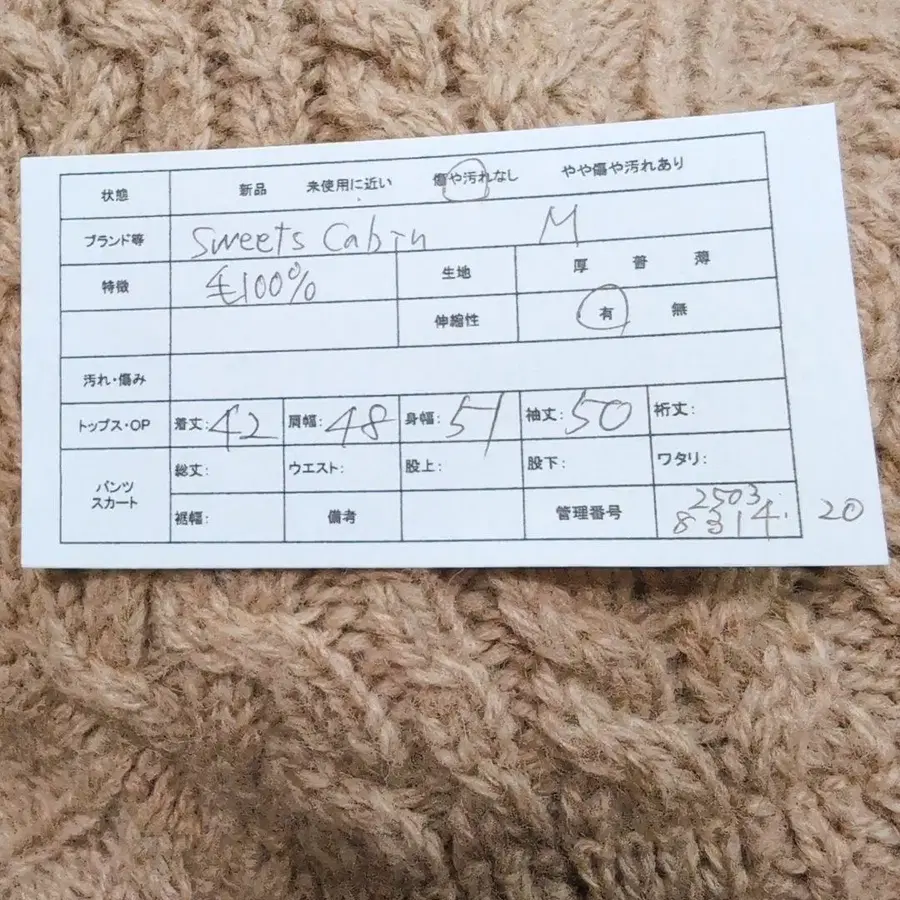 状態 新品 未使用に近い 傷や汚れなし やや傷や汚れあり
ブランド等 Sweets Cabin M
特徴 毛100% 生地 厚 普 薄
伸縮性 有 無
汚れ・傷み
トップス・OP 着丈: 42 肩幅: 48 身幅: 51 袖丈: 50 裄丈:
パンツ スカート 総丈: ウエスト: 股上: 股下: ワタリ:
裾幅: 備考 管理番号 2503
8314. 20